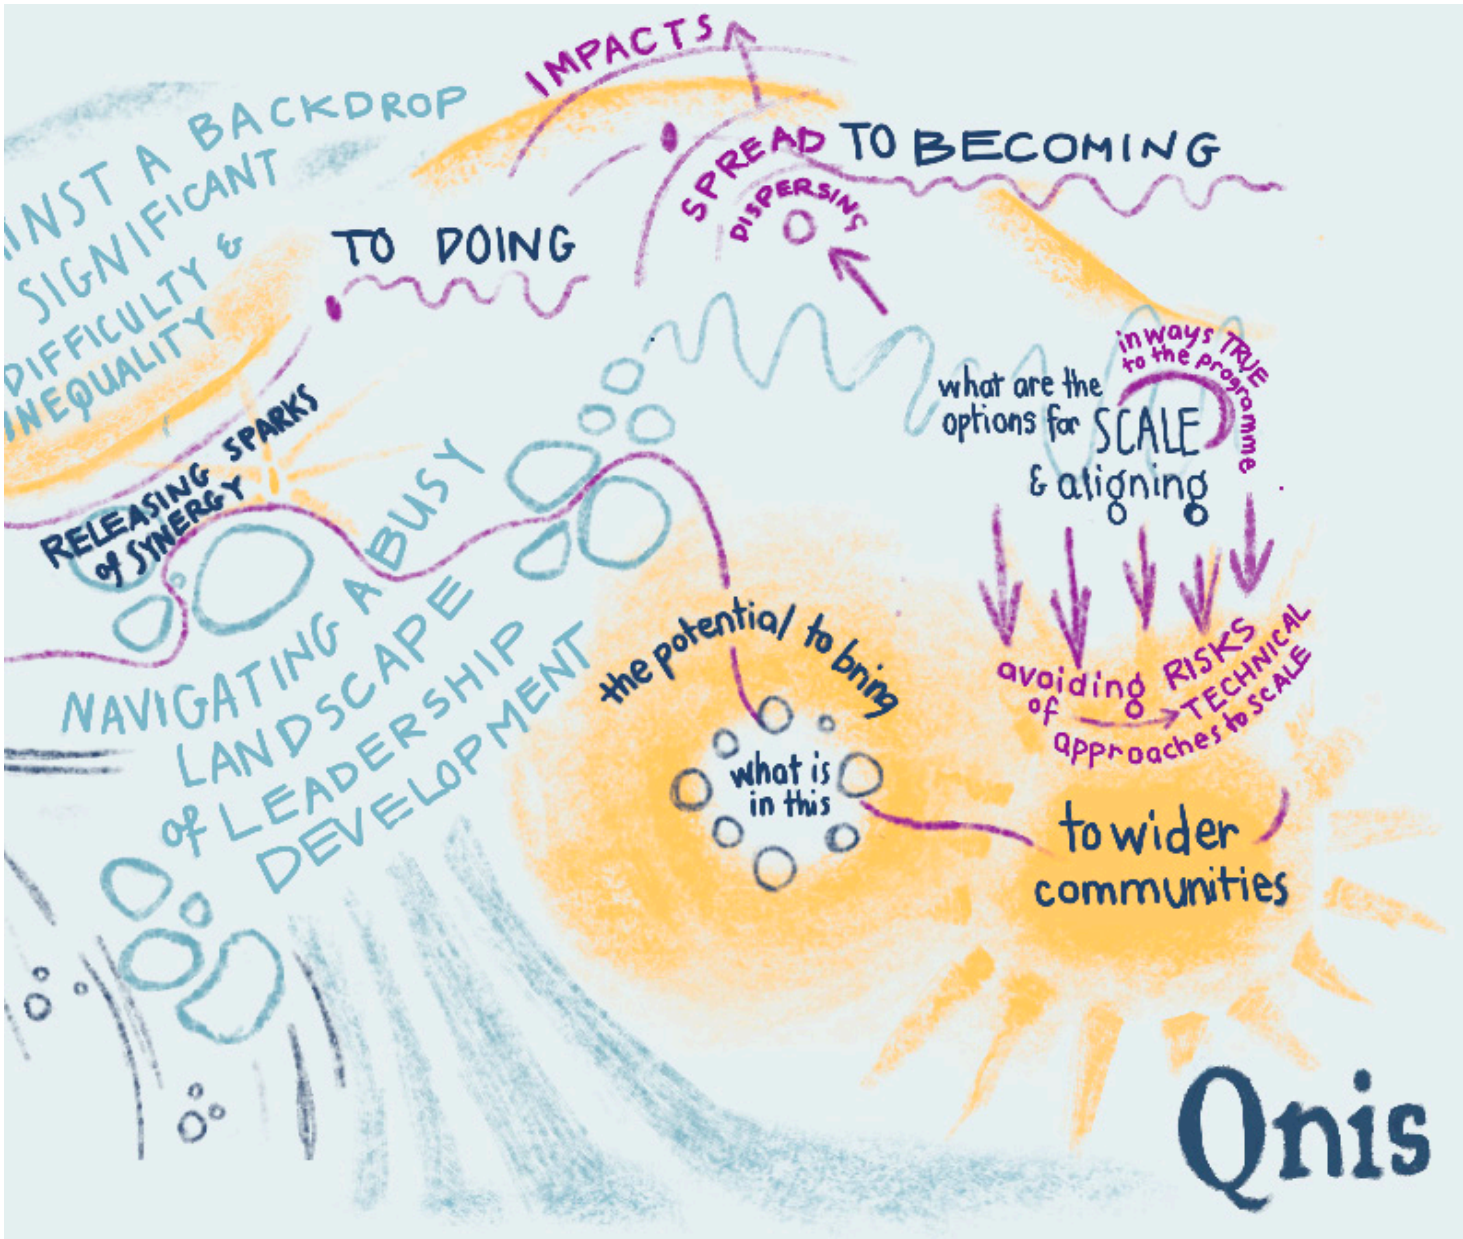 INST A BACKDROP
SIGNIFICANT
DIFFICULTY &
INEQUALITY
IMPACTS
SPREAD
DISPERSING
TO BECOMING
TO DOING
RELEASING SPARKS
of SYNERGY
NAVIGATING A BUSY
LANDSCAPE
of LEADERSHIP
DEVELOPMENT
what are the
options for SCALE
& aligning
in ways TRUE
to the programme
avoiding RISKS
of TECHNICAL
approaches to SCALE
the potential to bring
what is
in this
to wider
communities
Qnis